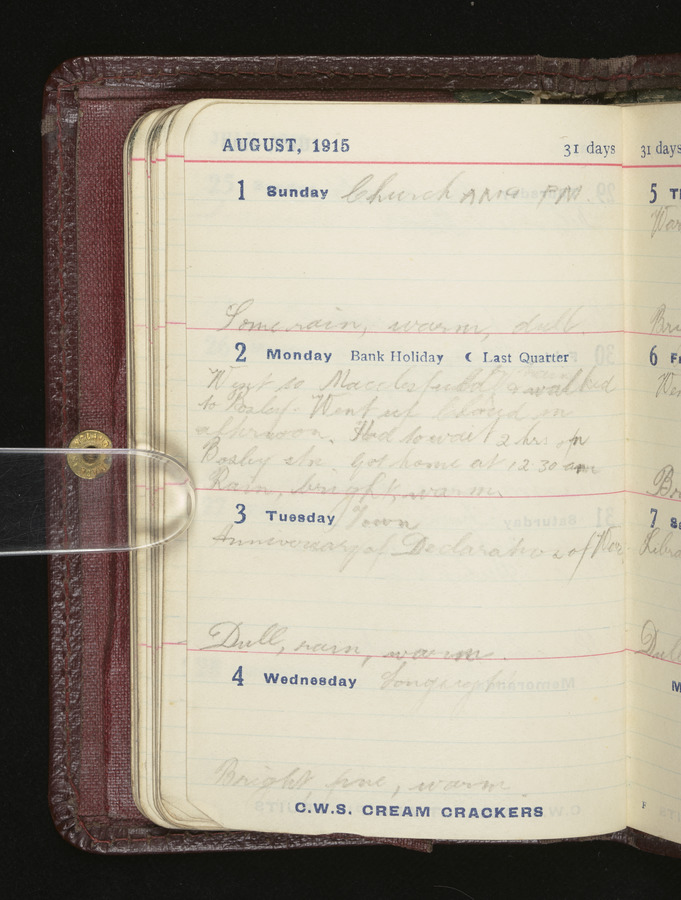 AUGUST, 1915 31 days
1 Sunday Church AM & PM.
Some rain, warm, dull.
2 Monday Bank Holiday ☾ Last Quarter
Went to Macclesfield & walked
to Bosley. Went up Cloud in
afternoon. Had to wait 2 hrs on
Bosley stn. Got home at 12.30 am
Rain, bright, warm
3 Tuesday Town
Anniversary of Declaration of War
Dull, rain, warm.
4 Wednesday
Bright, fine, warm.
C.W.S. CREAM CRACKERS
31 days
5
6
7
Dull
F